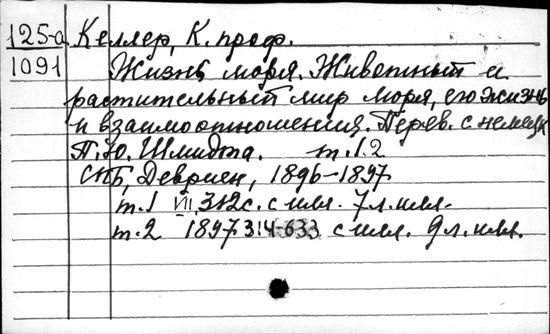 125-а Келлер, К. проф.
1091 Жизнь моря. Животный и
растительный мир моря, его жизнь
и взаимоотношения. Перев. с немецк
П. Ю. Шмидта. т. 1.2
СПБ, Девриен, 1896-1897
т. 1 VIII, 312 с. с илл. 7 л. илл.
т. 2 1897 314-633 с илл. 9 л. илл.